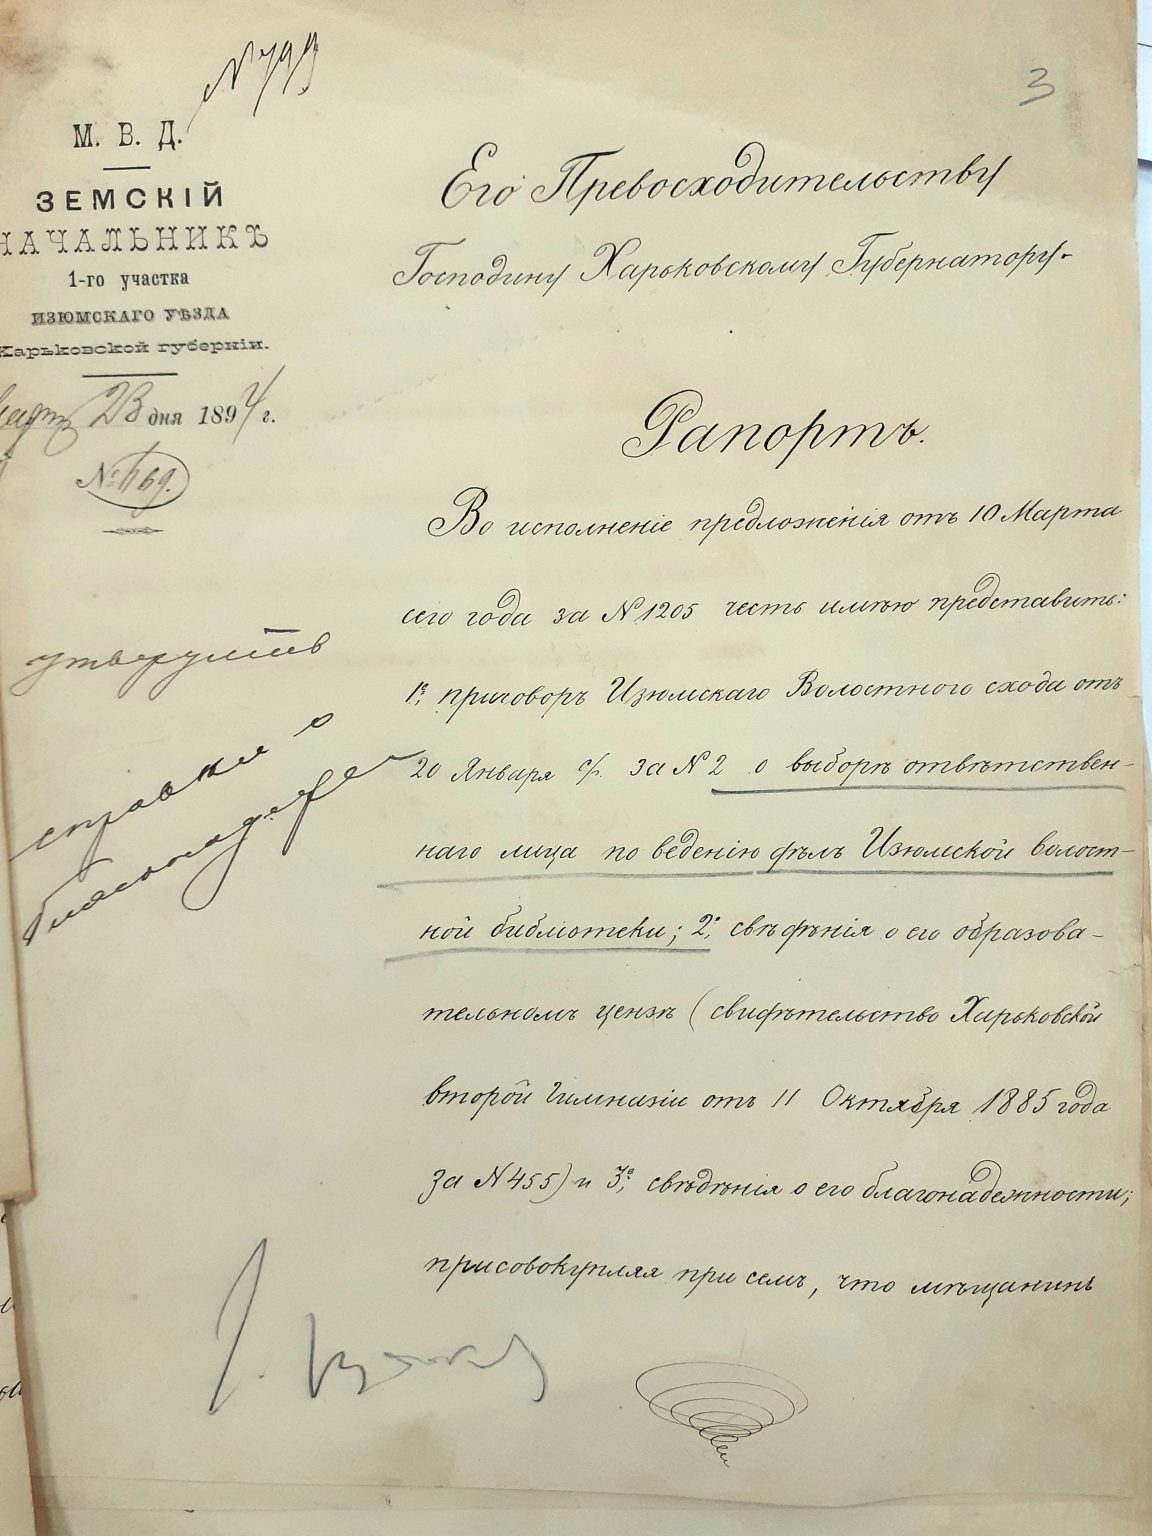 3
М. В. Д.
ЗЕМСКІЙ
НАЧАЛЬНИКЪ
1-го участка
ИЗЮМСКАГО УѢЗДА
Харьковской губерніи.
23 дня 1894 г.
№ 1169.
Его Превосходительству
Господину Харьковскому Губернатору.
Рапортъ.
Во исполненіе предложенія отъ 10 Марта
сего года за N 1205 честь имѣю представить:
1е, приговоръ Изюмскаго Волостного схода отъ
20 Января с/г. за N 2 о выборѣ отвѣтствен-
наго лица по веденію дѣлъ Изюмской волост-
ной библіотеки; 2е, свѣдѣнія о его образова-
тельномъ цензѣ (свидѣтельство Харьковской
второй Гимназіи отъ 11 Октября 1885 года
за N 455) и 3е, свѣдѣнія о его благонадежности;
присовокупляя при семъ, что мѣщанинъ
справки о